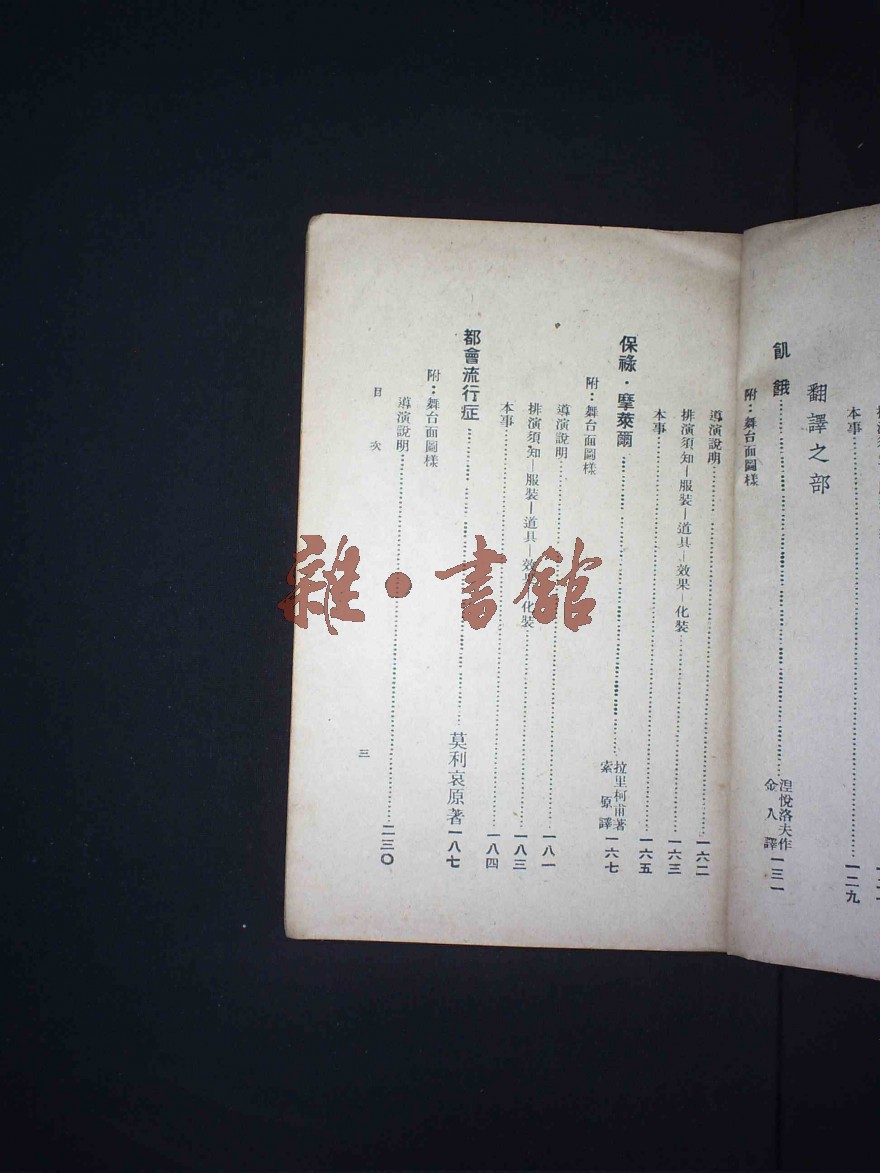 本事 一二九
翻譯之部
飢餓 涅悅洛夫作 金人譯 一三一
附：舞台面圖樣
導演說明 一六二
排演須知—服裝—道具—效果—化裝 一六三
本事 一六五
保祿·摩萊爾 拉里柯甫著 索原譯 一六七
附：舞台面圖樣
導演說明 一八一
排演須知—服裝—道具—效果—化裝 一八三
本事 一八四
都會流行症 莫利哀原著 一八七
附：舞台面圖樣
導演說明 二三〇
目次 三
雜·書館